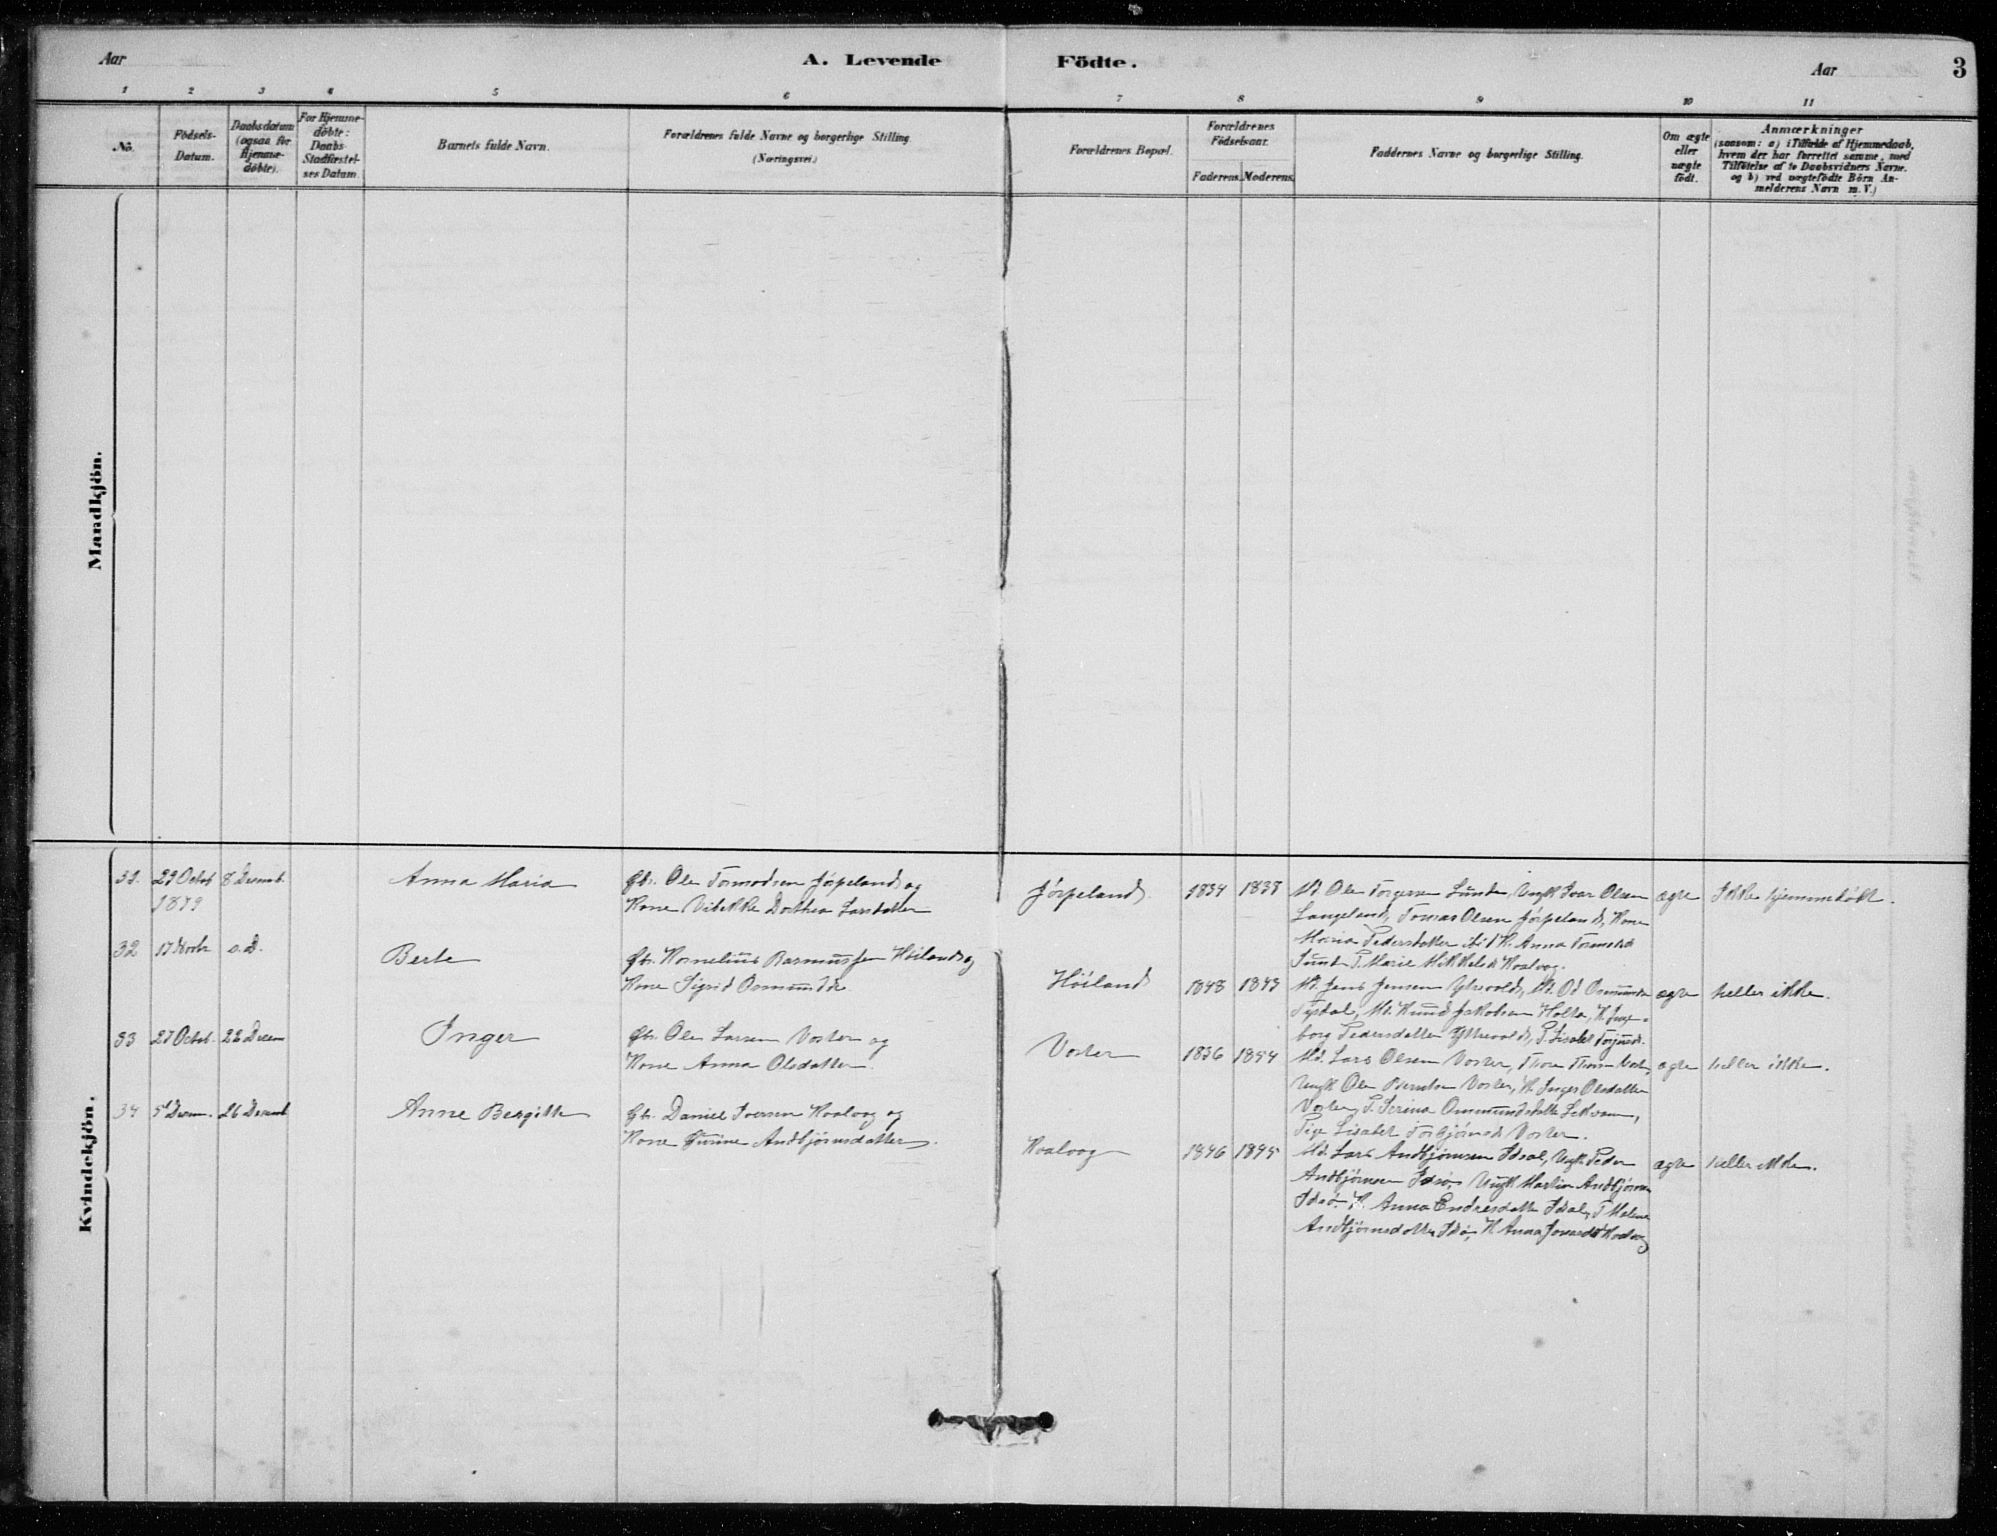 Aar
A. Levende
Födte.
Aar
3
1 2 3 4 5 6 7 8 9 10 11
No.
Födsels-
Datum.
Daabsdatum
(ogsaa for
Hjemme-
döbte).
For Hjemme-
döbte:
Daabs-
Stadfæstel-
ses Datum.
Barnets fulde Navn.
Forældrenes fulde Navne og borgerlige Stilling.
(Næringsvei.)
Forældrenes Bopæl.
Forældrenes
Födselsaar.
Faderens. Moderens.
Faddernes Navne og borgerlige Stilling.
Om ægte
eller
uægte
födt.
Anmærkninger
(saasom: a) i Tilfælde af Hjemmedaab,
hvem der har forrettet samme, med
Tilföielse af to Daabsvidners Navne.
og b) ved uægtefödte Börn An-
melderens Navn m. V.)
Mandkjön.
Kvindekjön.
31. 29 Octob 8 Decemb.
1879
Anna Maria
Gbr. Ole Tormodsen Jörpeland og
Kone Vibekke Dorthea Larsdatter
Jörpeland
1834 1838
Md Ole Torgersen Lunde, Ungk Ivar Olsen
Langeland, Tomas Olsen Jörpeland, Kone
Maria Pedersdatter ibid K. Anna Tormodsd
P. Marie Mikkelsd Kaalvog.
ægte
Ikke hjemmedöbt.
32 17 Novbr s.D.
Berte
Gbr. Kornelius Rasmussen Höiland og
Kone Sigrid Osmundsdr
Höiland
1848 1843
Md. Jens Jensen Ytrevold, Md. Od Osmundsen
Md. Knud Jakobsen Holta, K. Inge-
borg Pedersdatter Yttrevold, P. Lisabet
ægte
heller ikke.
33 27 Octob. 22 Decem
Inger
Gbr. Ole Larsen Voster og
Kone Anna Olsdatter.
Voster
1836 1854
Md. Lars Olsen Voster, Thore Thorsen Voster,
Ungk Ole Berntsen Voster, K. Inger Olsdatter
Voster, P. Serina Ommundsdatter Lekvam,
Pige Lisabet Torbjörnsd Voster.
ægte
heller ikke.
34 5t Decem. 26 Decemb
Anne Bergitte
Gbr. Daniel Iversen Kaalvog og
Kone Gurine Andbjörnsdatter.
Kaalvog
1846 1845
Md. Lars Andbjörnsen Idsal, Ungk Peder
Andbjörnsen Idsö, Ungk Martin Andbjörnsen
Idsö. K Anna Endresdatter Idsal, P Malene
Andbjörnsdatter Idsö, K Anna Kaalvog
ægte
heller ikke.